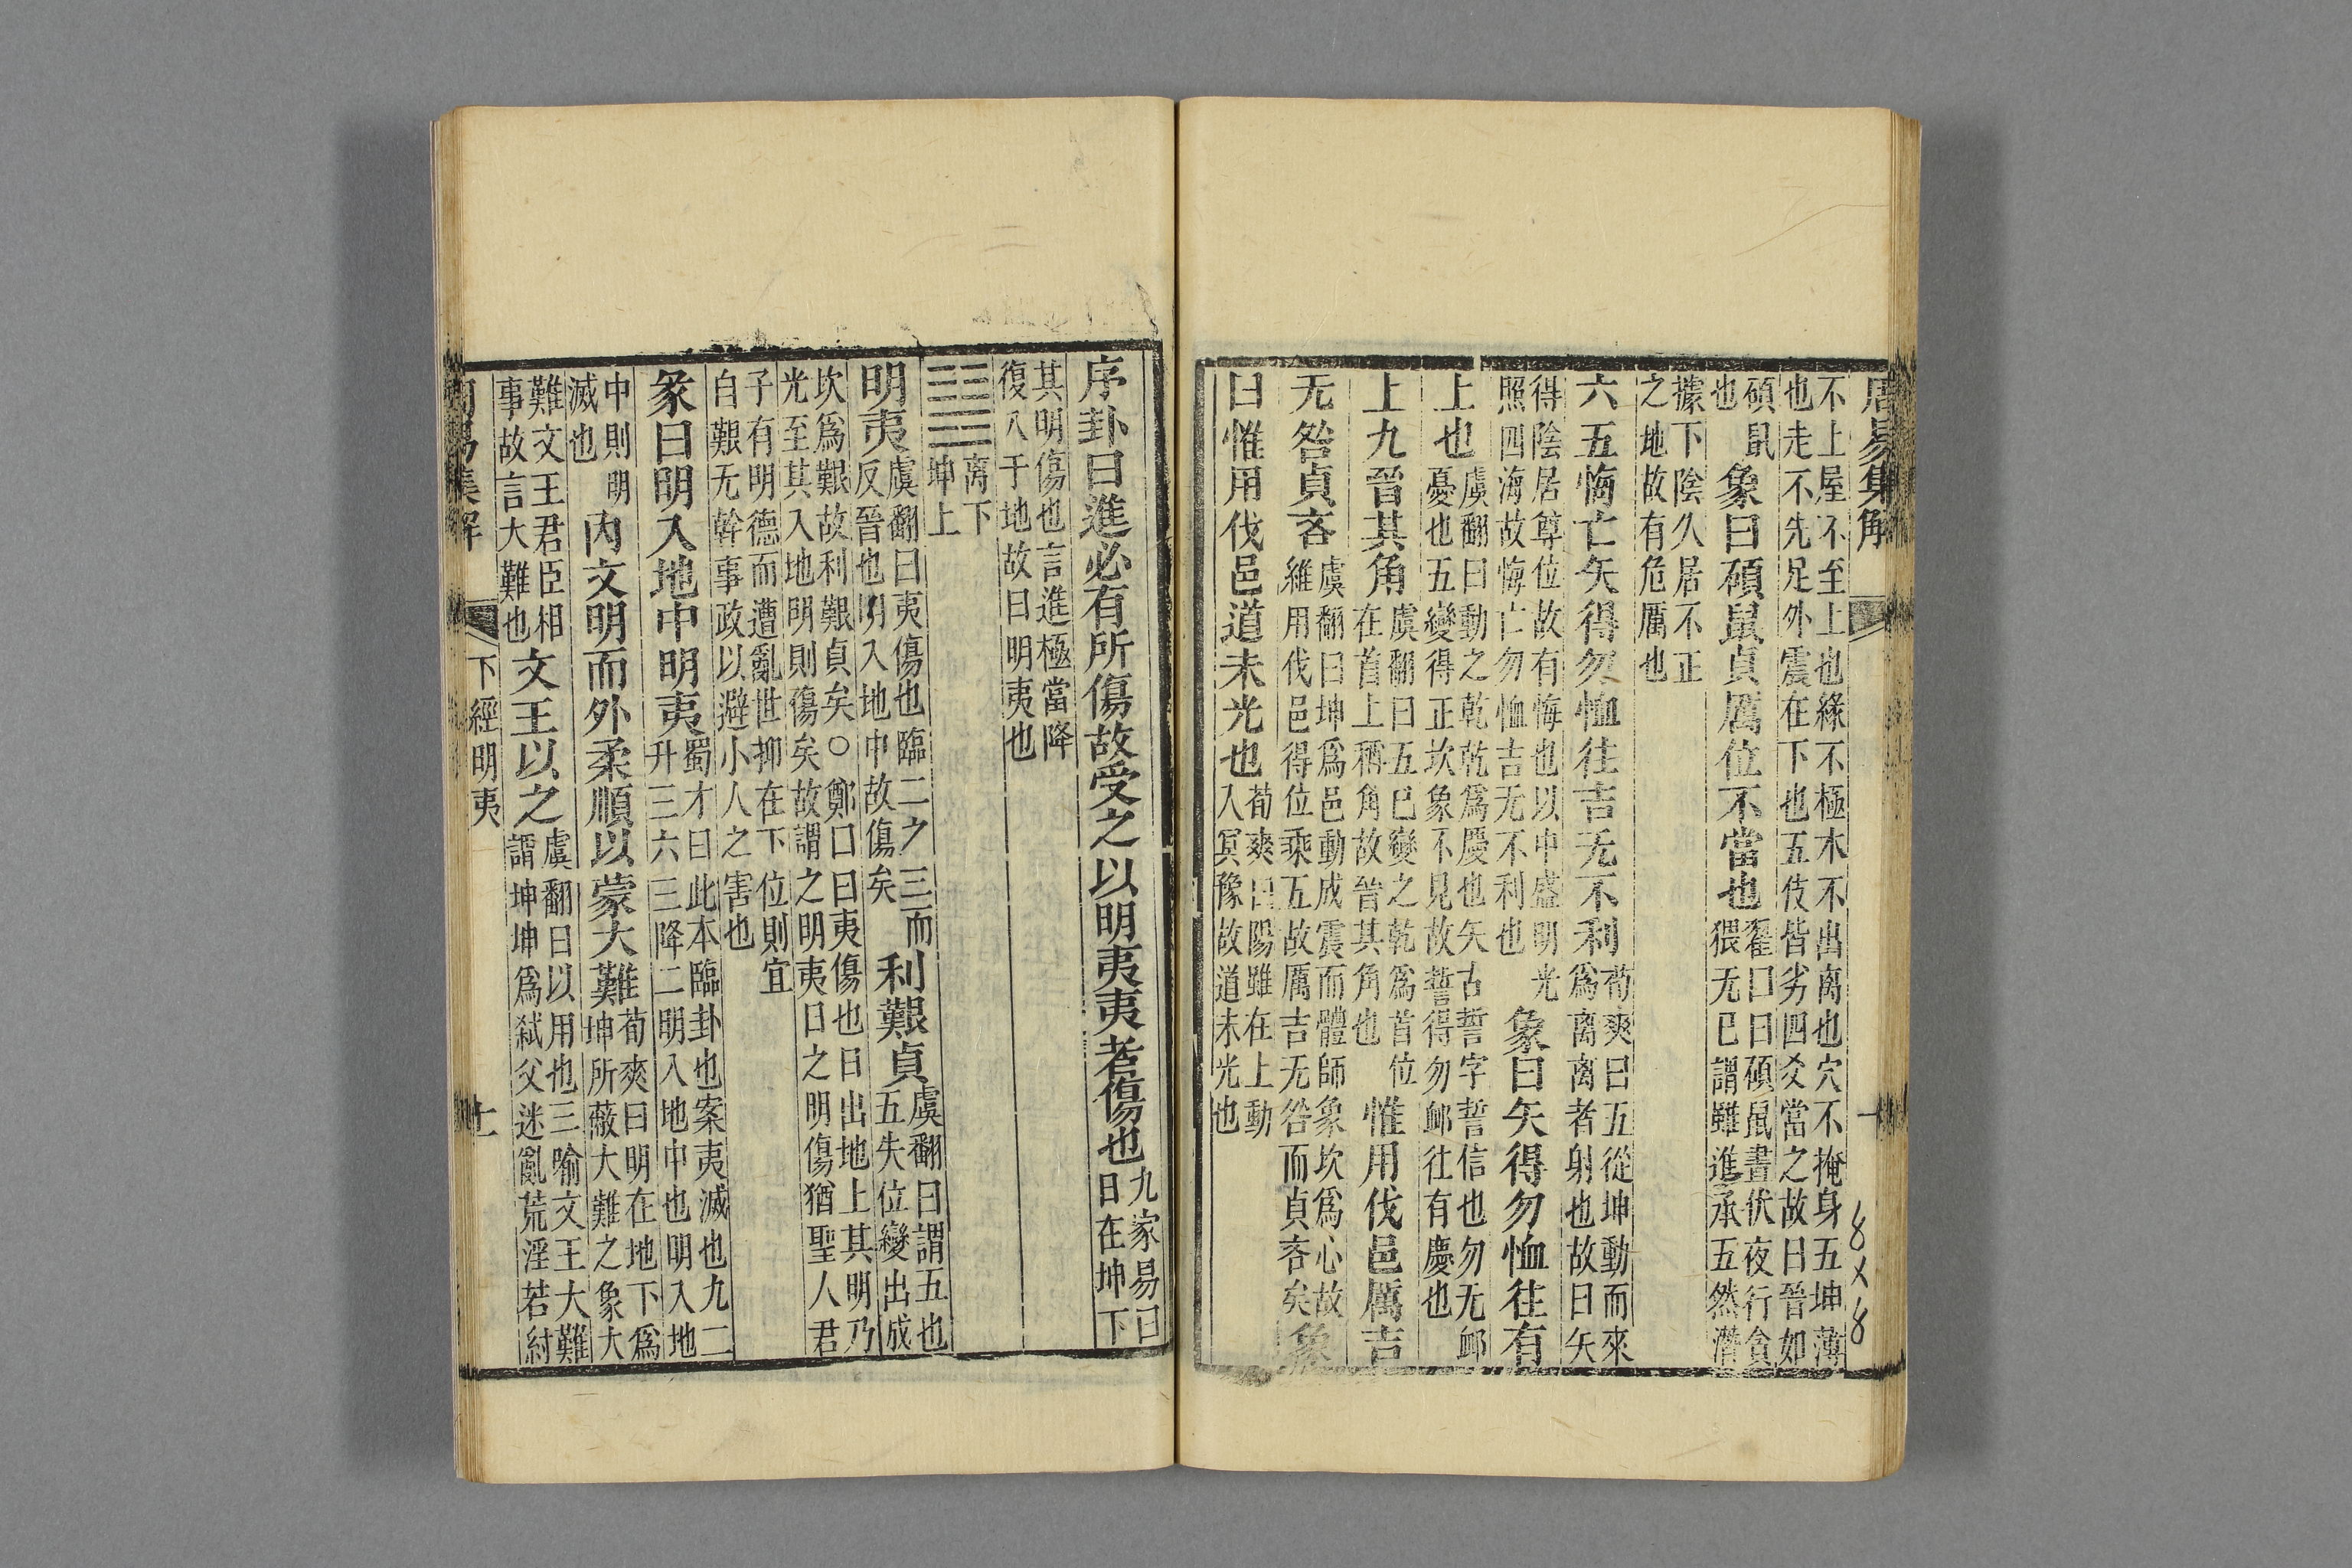 周易集解 十
8×8
不上屋不至上也緣不極木不出离也穴不掩身五坤薄
也走不先足外震在下也五伎皆劣四爻當之故曰晉如
碩鼠
也
象曰碩鼠貞厲位不當也
翟口曰碩鼠晝伏夜行貪
猥无已謂雖進承五然潛
據下陰久居不正
之地故有危厲也
六五悔亡矢得勿恤往吉无不利
荀爽曰五從坤動而來
爲离离者射也故曰矢
得陰居尊位故有悔也以中盛明光
照四海故悔亡勿恤吉无不利也
象曰矢得勿恤往有
上也
虞翻曰動之乾乾爲慶也矢古誓字誓信也勿无䘏
憂也五變得正坎象不見故誓得勿䘏往有慶也
上九晉其角
虞翻曰五已變之乾爲首位
在首上稱角故晉其角也
惟用伐邑厲吉
无咎貞吝
虞翻曰坤爲邑動成震而體師象坎爲心故
維用伐邑得位乘五故厲吉无咎而貞吝矣
象
曰惟用伐邑道未光也
荀爽曰陽雖在上動
入冥豫故道未光也
序卦曰進必有所傷故受之以明夷夷者傷也
九家易曰
日在坤下
其明傷也言進極當降
復入于地故曰明夷也
离下
坤上
明夷
虞翻曰夷傷也臨二之三而
反晉也明入地中故傷矣
利艱貞
虞翻曰謂五也
五失位變出成
坎爲艱故利艱貞矣○鄭口曰夷傷也日出地上其明乃
光至其入地明則傷矣故謂之明夷日之明傷猶聖人君
子有明德而遭亂世抑在下位則宜
自艱无幹事政以避小人之害也
彖曰明入地中明夷
蜀才曰此本臨卦也案夷滅也九二
升三六三降二明入地中也明入地
中則明
滅也
內文明而外柔順以蒙大難
荀爽曰明在地下爲
坤所蔽大難之象大
難文王君臣相
事故言大難也
文王以之
虞翻曰以用也三喻文王大難
謂坤坤爲弑父迷亂荒淫若紂
周易集解 下經明夷 十一